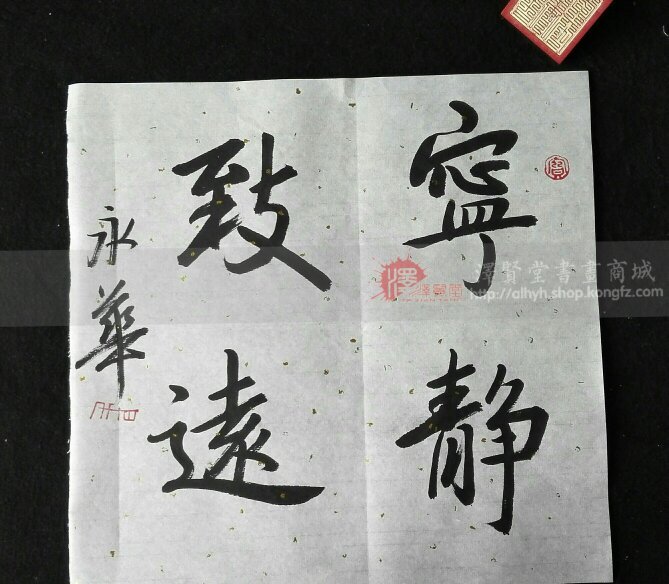 寧靜
致遠
永華
澤賢堂書畫商城
http://alhyh.shop.kongfz.com